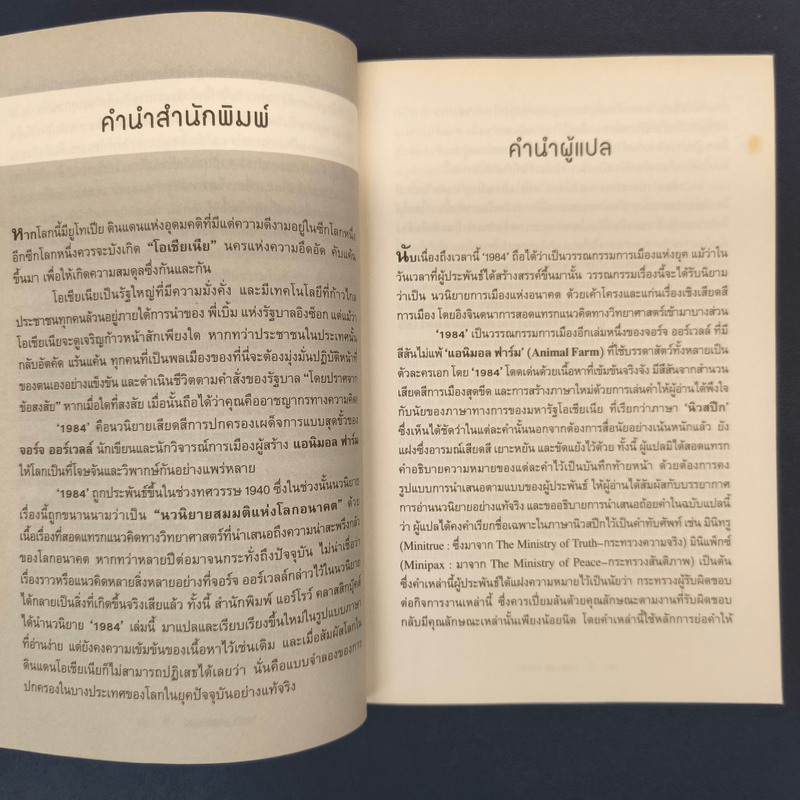 คำนำสำนักพิมพ์
หากโลกนี้มียูโทเปีย ดินแดนแห่งอุดมคติที่มีแต่ความดีงามอยู่ในซีกโลกหนึ่ง
อีกซีกโลกหนึ่งควรจะบังเกิด "โอเชียเนีย" นครแห่งความอึดอัด คับแค้น
ขึ้นมา เพื่อให้เกิดความสมดุลซึ่งกันและกัน
โอเชียเนียเป็นรัฐใหญ่ที่มีความมั่งคั่ง และมีเทคโนโลยีที่ก้าวไกล
ประชาชนทุกคนล้วนอยู่ภายใต้การนำของ พี่เบิ้ม แห่งรัฐบาลอิงซ็อก แต่แม้ว่า
โอเชียเนียจะดูเจริญก้าวหน้าสักเพียงใด หากทว่าประชาชนในประเทศนั้น
กลับอัตคัด แร้นแค้น ทุกคนที่เป็นพลเมืองของที่นี่จะต้องมุ่งมั่นปฏิบัติหน้าที่
ของตนเองอย่างแข็งขัน และดำเนินชีวิตตามคำสั่งของรัฐบาล "โดยปราศจาก
ข้อสงสัย" หากเมื่อใดที่สงสัย เมื่อนั้นถือได้ว่าคุณคืออาชญากรทางความคิด
'1984' คือนวนิยายเสียดสีการปกครองเผด็จการแบบสุดขั้วของ
จอร์จ ออร์เวลล์ นักเขียนและนักวิจารณ์การเมืองผู้สร้าง แอนิมอล ฟาร์ม
ให้โลกเป็นที่โจษจันและวิพากษ์กันอย่างแพร่หลาย
'1984' ถูกประพันธ์ขึ้นในช่วงทศวรรษ 1940 ซึ่งในช่วงนั้นนวนิยาย
เรื่องนี้ถูกขนานนามว่าเป็น "นวนิยายสมมติแห่งโลกอนาคต" ด้วย
เนื้อเรื่องที่สอดแทรกแนวคิดทางวิทยาศาสตร์ที่นำเสนอถึงความน่าสะพรึงกลัว
ของโลกอนาคต หากทว่าหลายปีต่อมาจนกระทั่งถึงปัจจุบัน ไม่น่าเชื่อว่า
เรื่องราวหรือแนวคิดหลายสิ่งหลายอย่างที่จอร์จ ออร์เวลล์กล่าวไว้ในนวนิยาย
ได้กลายเป็นสิ่งที่เกิดขึ้นจริงเสียแล้ว ทั้งนี้ สำนักพิมพ์ แอร์โรว์ คลาสสิกบุ๊คส์
ได้นำนวนิยาย '1984' เล่มนี้ มาแปลและเรียบเรียงขึ้นใหม่ในรูปแบบภาษา
ที่อ่านง่าย แต่ยังคงความเข้มข้นของเนื้อหาไว้เช่นเดิม และเมื่อสัมผัสโลกใน
ดินแดนโอเชียเนียก็ไม่สามารถปฏิเสธได้เลยว่า นั่นคือแบบจำลองของการ
ปกครองในบางประเทศของโลกในยุคปัจจุบันอย่างแท้จริง
คำนำผู้แปล
นับเนื่องถึงเวลานี้ '1984' ถือได้ว่าเป็นวรรณกรรมการเมืองแห่งยุค แม้ว่าใน
วันเวลาที่ผู้ประพันธ์ได้สร้างสรรค์ขึ้นมานั้น วรรณกรรมเรื่องนี้จะได้รับนิยาม
ว่าเป็น นวนิยายการเมืองแห่งอนาคต ด้วยเค้าโครงและแก่นเรื่องเชิงเสียดสี
การเมือง โดยอิงจินตนาการสอดแทรกแนวคิดทางวิทยาศาสตร์เข้ามาบางส่วน
'1984' เป็นวรรณกรรมการเมืองอีกเล่มหนึ่งของจอร์จ ออร์เวลล์ ที่มี
สีสันไม่แพ้ 'แอนิมอล ฟาร์ม' (Animal Farm) ที่ใช้บรรดาสัตว์ทั้งหลายเป็น
ตัวละครเอก โดย '1984' โดดเด่นด้วยเนื้อหาที่เข้มข้นจริงจัง มีสีสันจากสำนวน
เสียดสีการเมืองสุดขีด และการสร้างภาษาใหม่ด้วยการเล่นคำให้ผู้อ่านได้พึงใจ
กับนัยของภาษาทางการของมหารัฐโอเชียเนีย ที่เรียกว่าภาษา 'นิวสปีก'
ซึ่งเห็นได้ชัดว่าในแต่ละคำนั้นนอกจากต้องการสื่อนัยอย่างเน้นหนักแล้ว ยัง
แฝงซึ่งอารมณ์เสียดสี เยาะหยัน และขัดแย้งไว้ด้วย ทั้งนี้ ผู้แปลมิได้สอดแทรก
คำอธิบายความหมายของแต่ละคำไว้เป็นบันทึกท้ายหน้า ด้วยต้องการคง
รูปแบบการนำเสนอตามแบบของผู้ประพันธ์ ให้ผู้อ่านได้สัมผัสกับบรรยากาศ
การอ่านนวนิยายอย่างแท้จริง และขออธิบายการนำเสนอถ้อยคำในฉบับแปลนี้
ว่า ผู้แปลได้คงคำเรียกชื่อเฉพาะในภาษานิวสปีกไว้เป็นคำทับศัพท์ เช่น มินิทรู
(Minitrue : ซึ่งมาจาก The Ministry of Truth–กระทรวงความจริง) มินิแพ็กซ์
(Minipax : มาจาก The Ministry of Peace–กระทรวงสันติภาพ) เป็นต้น
ซึ่งคำเหล่านี้ผู้ประพันธ์ได้แฝงความหมายไว้เป็นนัยว่า กระทรวงผู้รับผิดชอบ
ต่อกิจการงานเหล่านี้ ซึ่งควรเปี่ยมล้นด้วยคุณลักษณะตามงานที่รับผิดชอบ
กลับมีคุณลักษณะเหล่านั้นเพียงน้อยนิด โดยคำเหล่านี้ใช้หลักการย่อคำให้